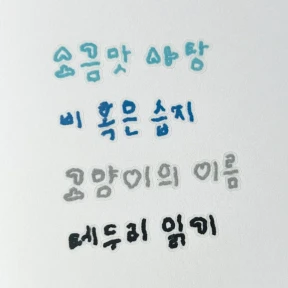 소금맛 사탕
비 혹은 습지
고양이의 이름
테두리 읽기